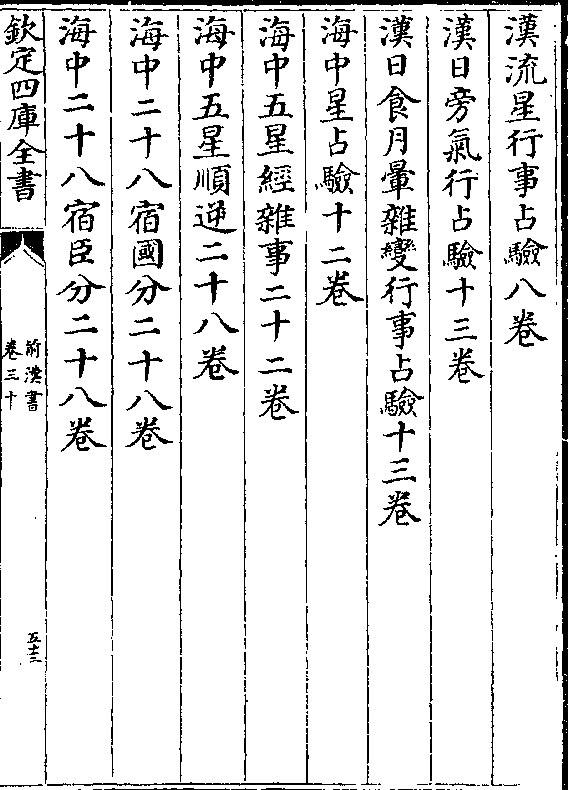 漢流星行事占驗八卷
漢日旁氣行占驗十三卷
漢日食月暈雜變行事占驗十三卷
海中星占驗十二卷
海中五星經雜事二十二卷
海中五星順逆二十八卷
海中二十八宿國分二十八卷
海中二十八宿臣分二十八卷
欽定四庫全書
前漢書
卷三十
五十三